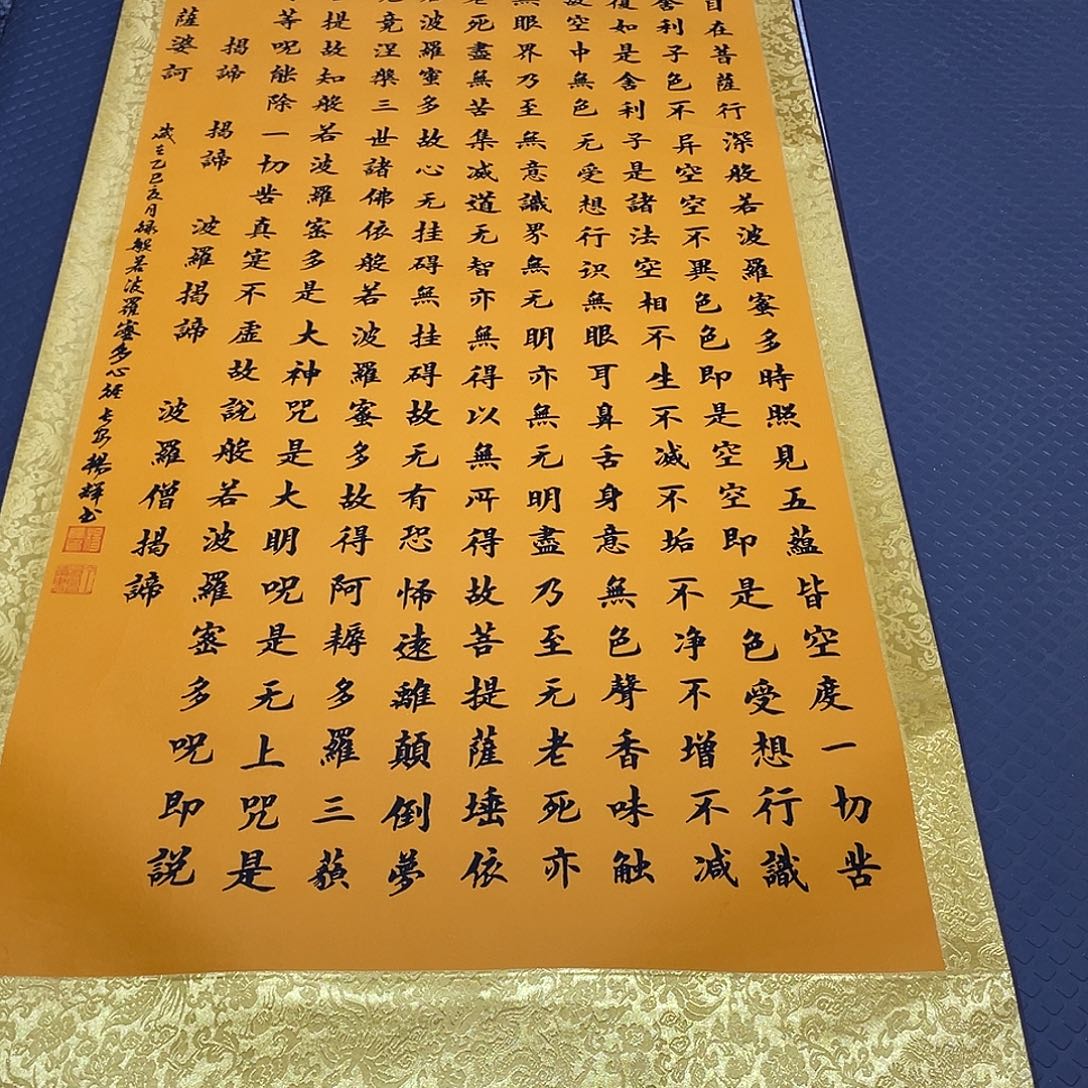 自在菩薩行深般若波羅蜜多時照見五蘊皆空度一切苦
舍利子色不异空空不異色色即是空空即是色受想行識
復如是舍利子是諸法空相不生不滅不垢不净不增不减
故空中無色无受想行识無眼耳鼻舌身意無色聲香味触
無眼界乃至無意識界無无明亦無无明盡乃至无老死亦
老死盡無苦集滅道无智亦無得以無所得故菩提薩埵依
波羅蜜多故心无挂碍無挂碍故无有恐怖遠離顛倒夢
究竟涅槃三世諸佛依般若波羅蜜多故得阿耨多羅三藐
提故知般若波羅蜜多是大神咒是大明咒是无上咒是
等咒能除一切苦真实不虛故說般若波羅蜜多咒即説
揭諦 揭諦 波羅揭諦 波羅僧揭諦
薩婆訶
歲在乙巳夏月録般若波羅蜜多心經 长安楊輝書